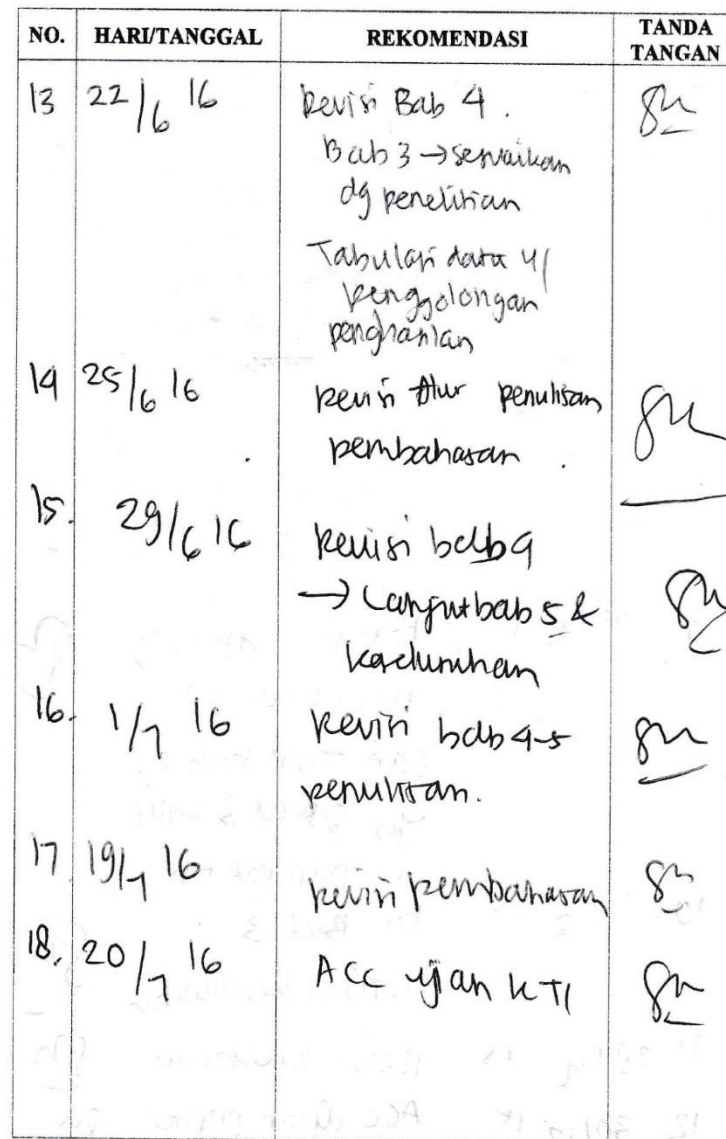 NO. HARI/TANGGAL REKOMENDASI TANDA TANGAN
13 22/6 16 Revisi Bab 4.
Bab 3 → sesuaikan
dg penelitian
Tabulasi data u/
penggolongan
penghasilan
14 25/6 16 revisi Alur penulisan
pembahasan.
15. 29/6 16 Revisi bab 4
→ Lanjut bab 5 &
keseluruhan
16. 1/7 16 Revisi bab 4-5
penulisan.
17 19/7 16 revisi pembahasan
18. 20/7 16 ACC ujian KTI